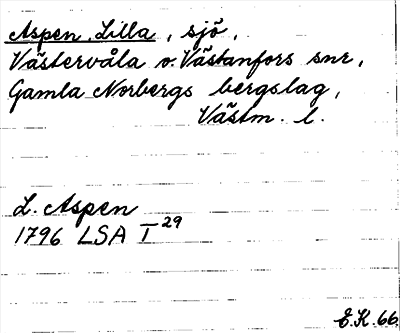 Aspen, Lilla, sjö,
Västervåla o. Västanfors snr,
Gamla Norbergs bergslag,
Västm. l.
L. Aspen
1796 LSA I 29
E.K. 66